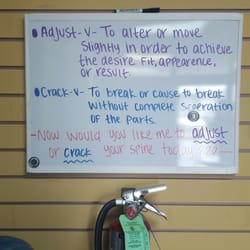 Adjust-v- To alter or move
slightly in order to achieve
the desire Fit, appearence,
or result.
Crack-v- To break or cause to break
without complete seperation
of the parts.
-Now would you like me to adjust
or crack your spine today